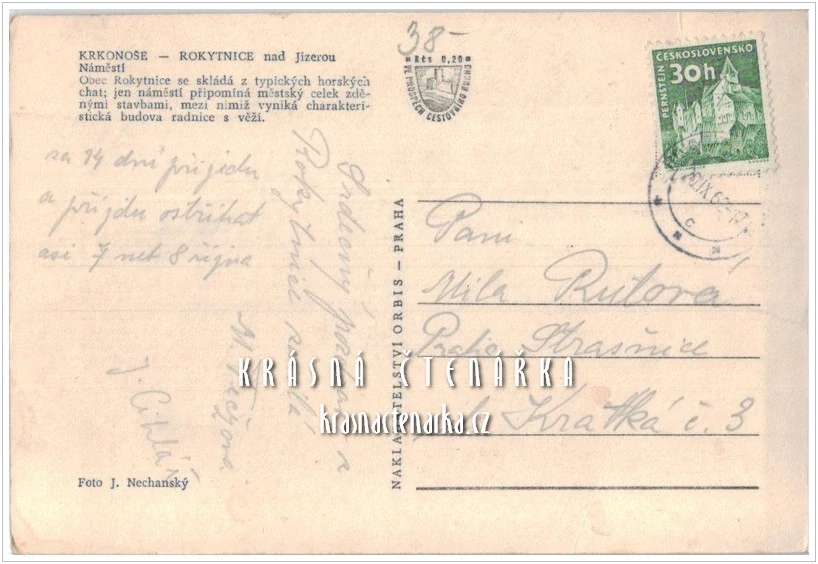 38-
KRKONOŠE — ROKYTNICE nad Jizerou
Náměstí
Obec Rokytnice se skládá z typických horských
chat; jen náměstí připomíná městský celek zdě-
nými stavbami, mezi nimiž vyniká charakteri-
stická budova radnice s věží.
Kčs 0,20
VE PROSPĚCH CESTOVNÍHO RUCHU
ČESKOSLOVENSKO
PERNŠTEJN
30h
IX
za 14 dní přijedu
a přijdu ostříhat
asi 7 neb 8 října
Srdečný pozdrav z
Rokytnice
J. Cihlář
NAKLADATELSTVÍ ORBIS — PRAHA
Paní
Mila Rutová
Praha Strašnice
Krátká č. 3
KRÁSNÁ ČTENÁŘKA
krasnactenarka.cz
Foto J. Nechanský